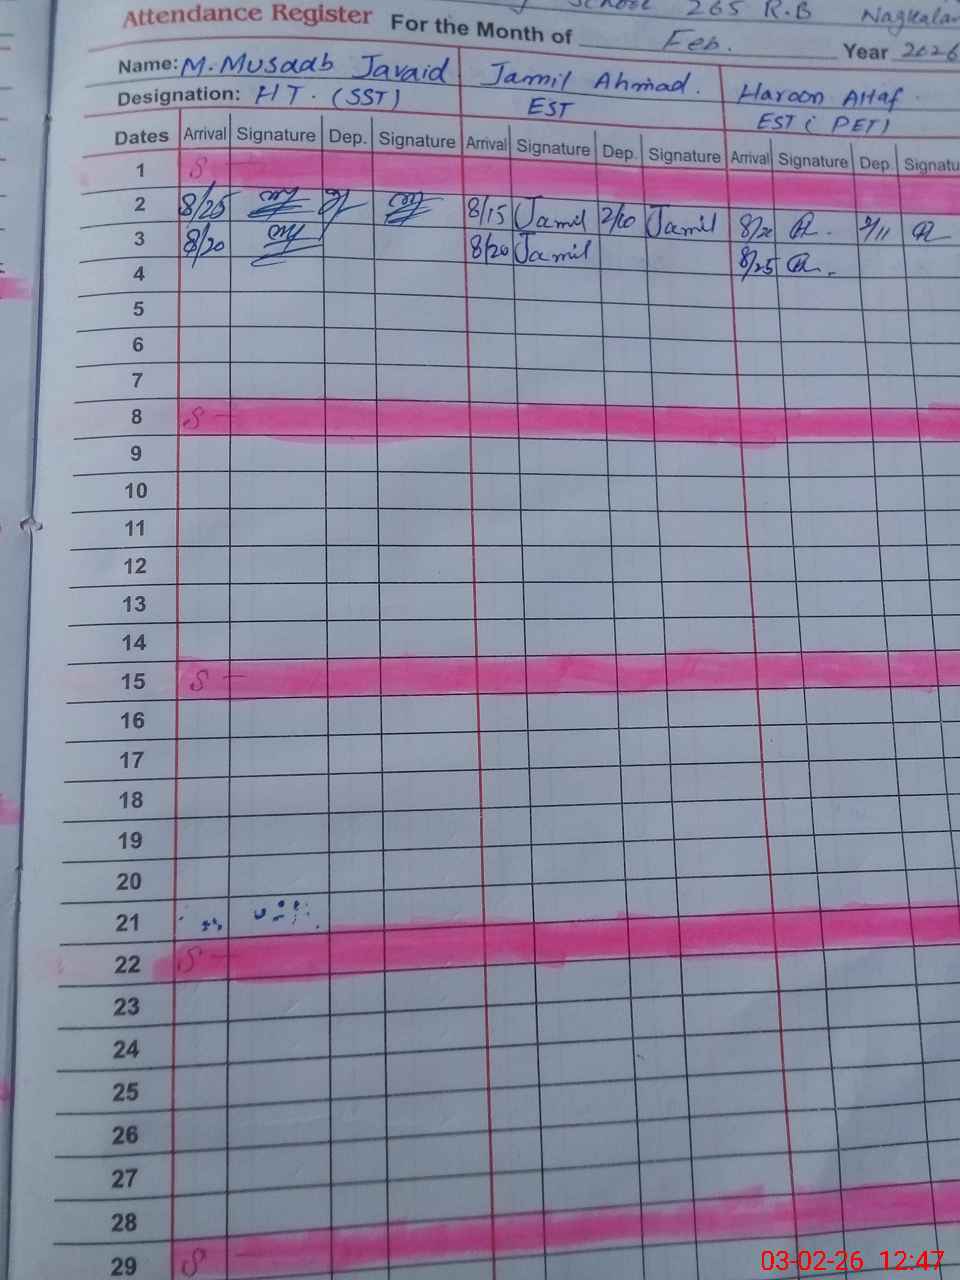 School 265 R.B
Attendance Register For the Month of Feb. Year 2026
Name: M. Musaab Javaid Jamil Ahmad. Haroon Altaf
Designation: HT. (SST) EST EST (PET)
Dates Arrival Signature Dep. Signature Arrival Signature Dep. Signature Arrival Signature Dep. Signatu
1 S
2 8/25 8/15 Jamil 2/10 Jamil 8/20 2/11
3 8/20 8/20 Jamil 8/25
4
5
6
7
8 S
9
10
11
12
13
14
15 S
16
17
18
19
20
21
22 S
23
24
25
26
27
28
29 S
03-02-26 12:47